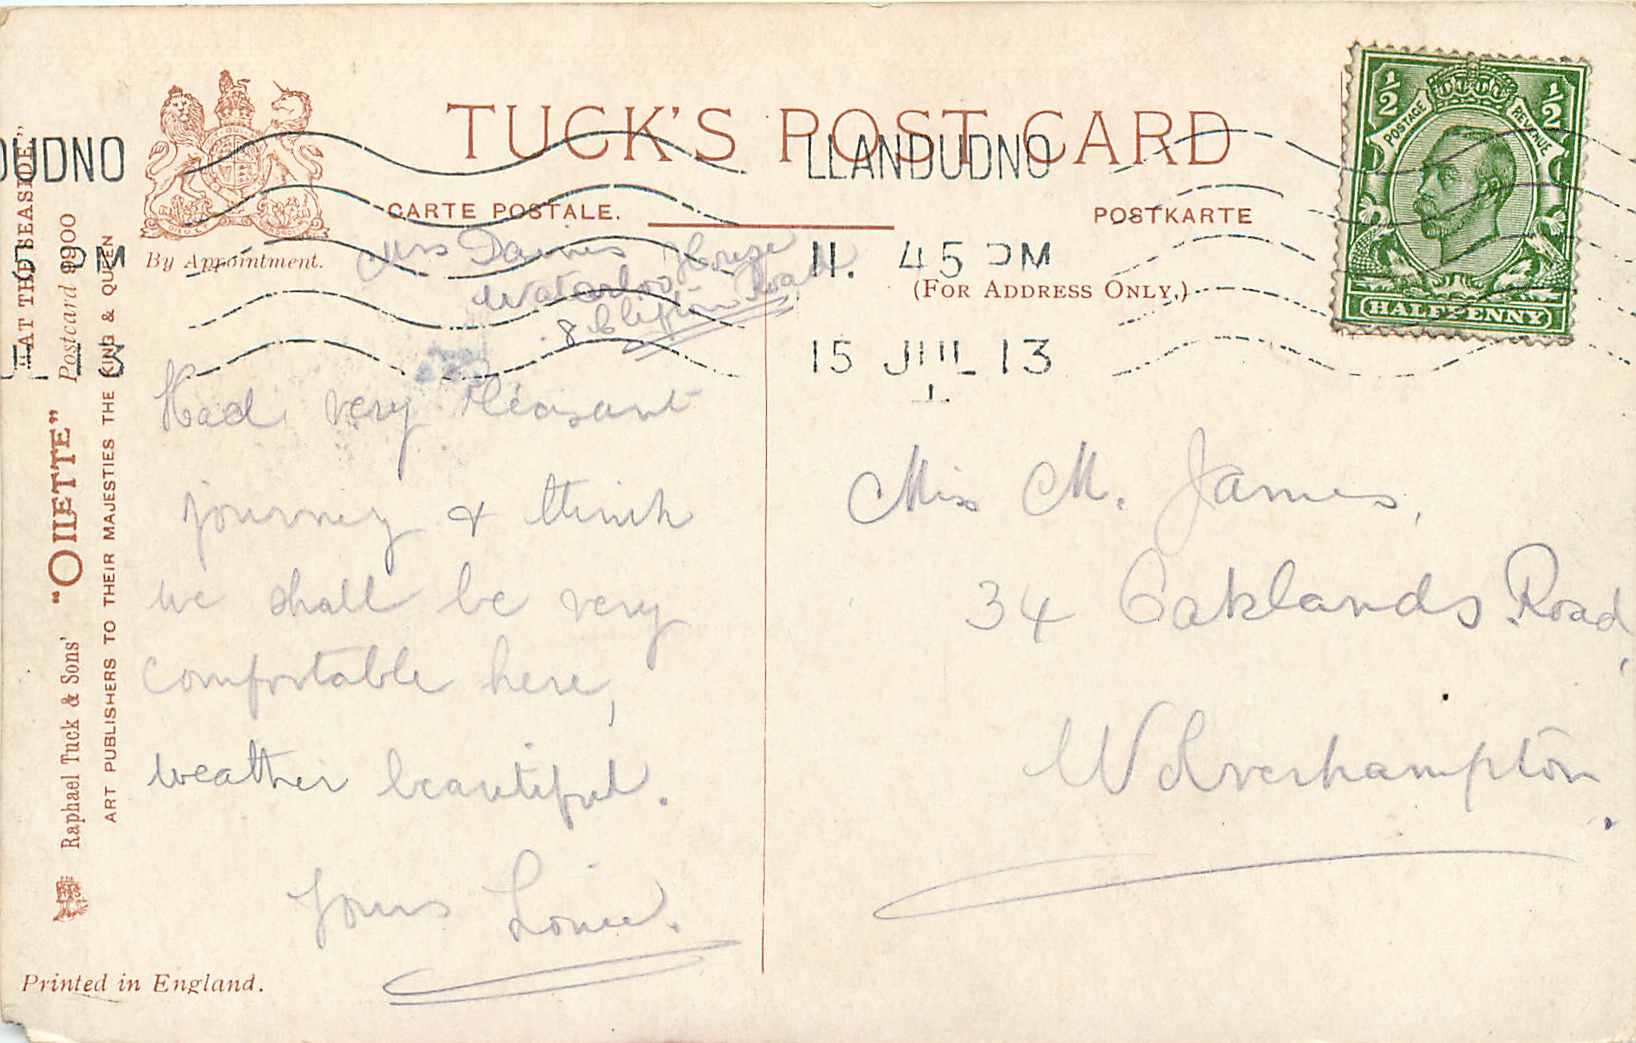 TUCK'S POST CARD
CARTE POSTALE.
POSTKARTE
By Appointment.
(FOR ADDRESS ONLY.)
LLANDUDNO
11. 45 PM
15 JUL 13
1
DUDNO
PM
13
½
½
POSTAGE
REVENUE
HALFPENNY
Mrs Davies
Waterloo House
8 Clifton Road
Had very pleasant
journey & think
we shall be very
comfortable here,
weather beautiful.
Yours Louie.
Miss M. James,
34 Oaklands Road,
Wolverhampton.
"AT THE SEASIDE"
Postcard 9900
Raphael Tuck & Sons' "OILETTE"
ART PUBLISHERS TO THEIR MAJESTIES THE KING & QUEEN
Printed in England.